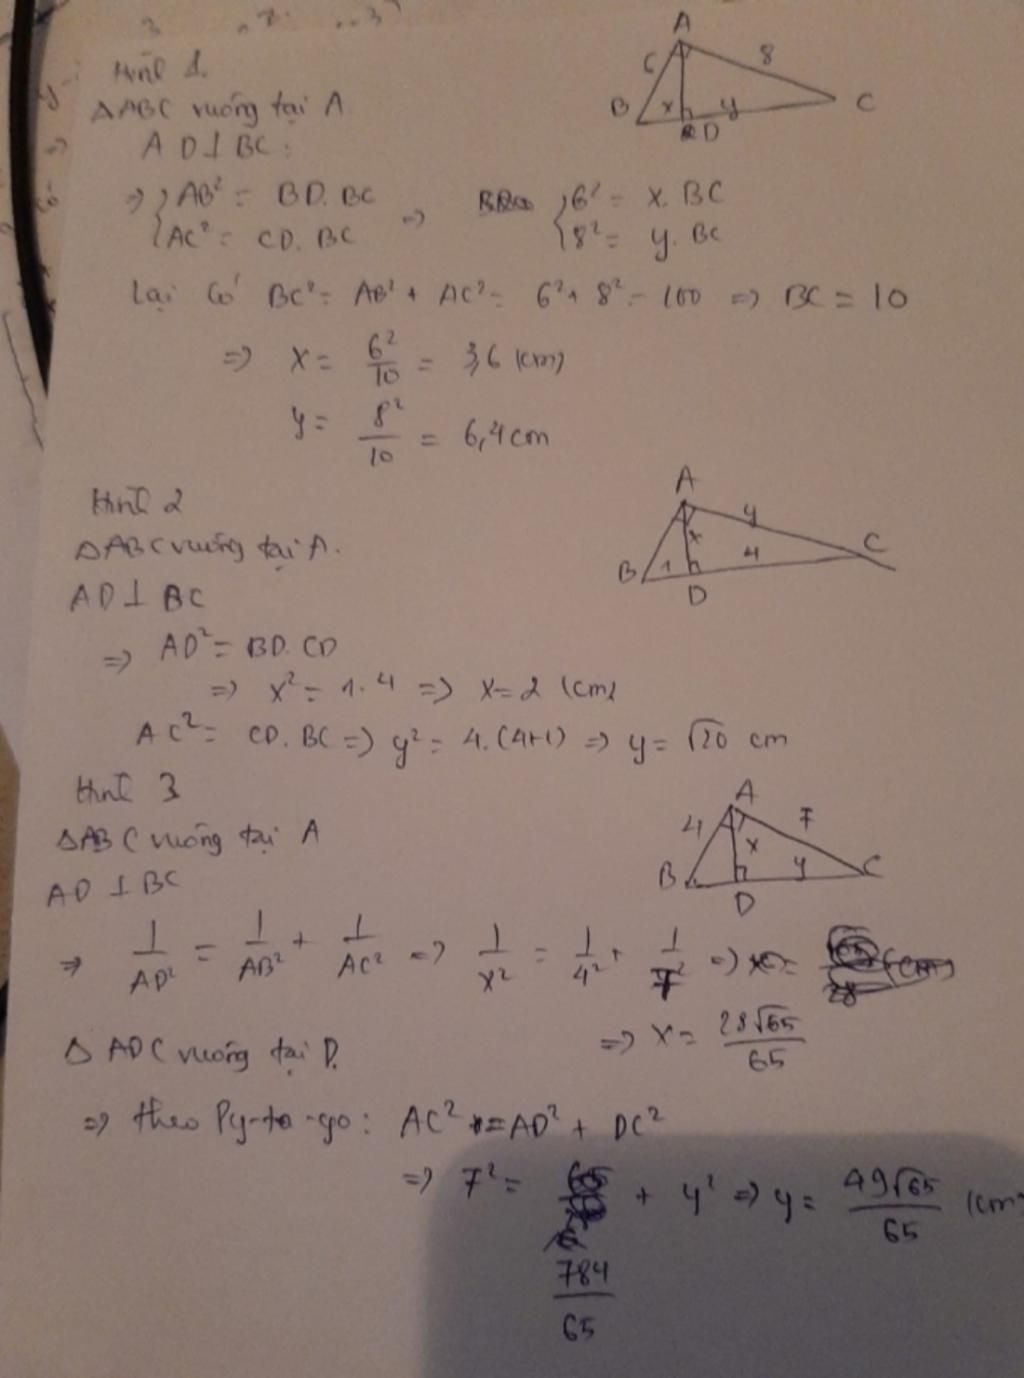 Hình 1.
A
6
8
B
x
y
C
D
ΔABC vuông tại A.
AD ⊥ BC:
=> { AB² = BD.BC => { 6² = x.BC
{ AC² = CD.BC { 8² = y.BC
Lại có BC² = AB² + AC² = 6² + 8² = 100 => BC = 10
=> x = 6²/10 = 3,6 (cm)
y = 8²/10 = 6,4cm
Hình 2
A
y
x
B
1
4
C
D
ΔABC vuông tại A.
AD ⊥ BC
=> AD² = BD.CD
=> x² = 1.4 => x = 2 (cm)
AC² = CD.BC => y² = 4.(4+1) => y = √20 cm
Hình 3
A
4
7
x
B
y
C
D
ΔABC vuông tại A
AD ⊥ BC
=> 1/AD² = 1/AB² + 1/AC² => 1/x² = 1/4² + 1/7²
=> x = 28√65/65
Δ ADC vuông tại D.
=> theo Py-ta-go: AC² = AD² + DC²
=> 7² = 784/65 + y² => y = 49√65/65 (cm)